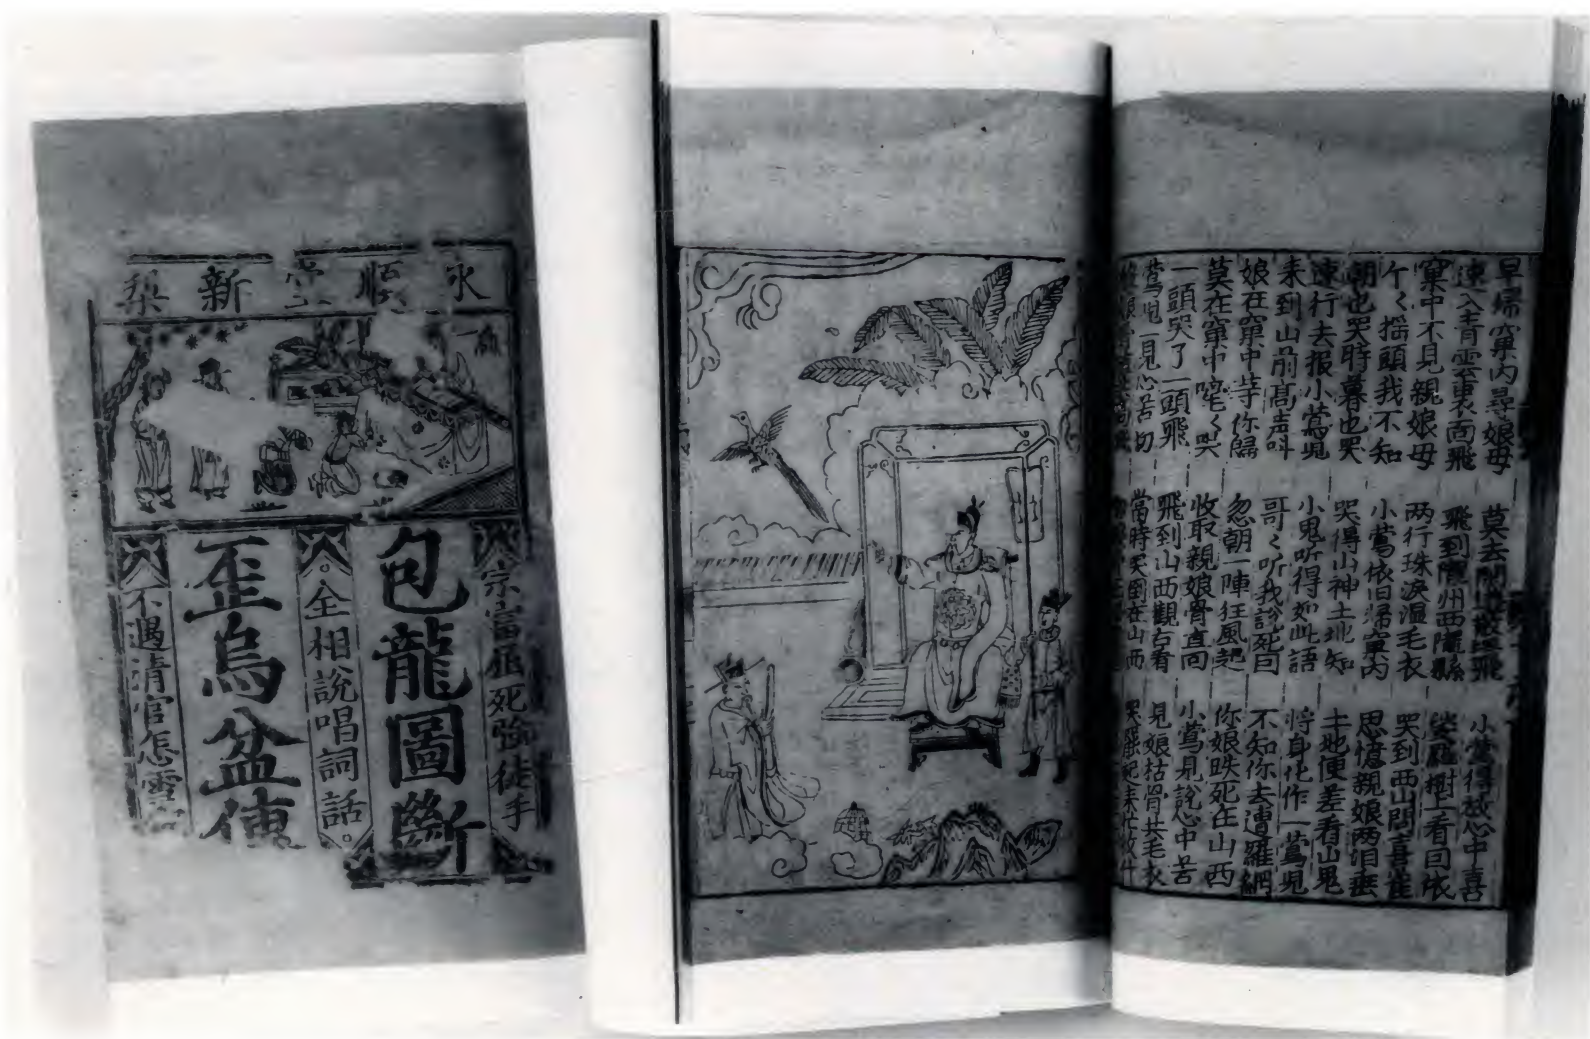 永順堂新
宗富死強徒手
包龍圖斷
。全相說唱詞話。
歪烏盆傳
不遇清官怎雪
早歸窠内尋娘母 莫去閑遊散 飛 小鶯得放心中喜
速入青雲裏面飛 飛到隴州西隴縣 娑羅樹上看回依
窠中不見親娘母 两行珠淚濕毛衣 哭到西山問喜雀
ケ〻揺頭我不知 小鶯依旧歸窠内 思憶親娘两泪垂
朝也哭時暮也哭 哭得山神土地知 土地便差看山鬼
速行去报小鶯児 小鬼听得如此語 将身化作一鶯児
来到山前髙声叫 哥〻听我說死曰 不知你去遭羅網
娘在窠中等你歸 忽朝一陣狂風起 你娘跌死在山西
莫在窠中啼〻哭 收取親娘骨直回 小鶯見說心中苦
一頭哭了一頭飛 飛到山西觀占看 見娘枯骨共毛衣
鶯児一見心苦切 當時哭倒在山西